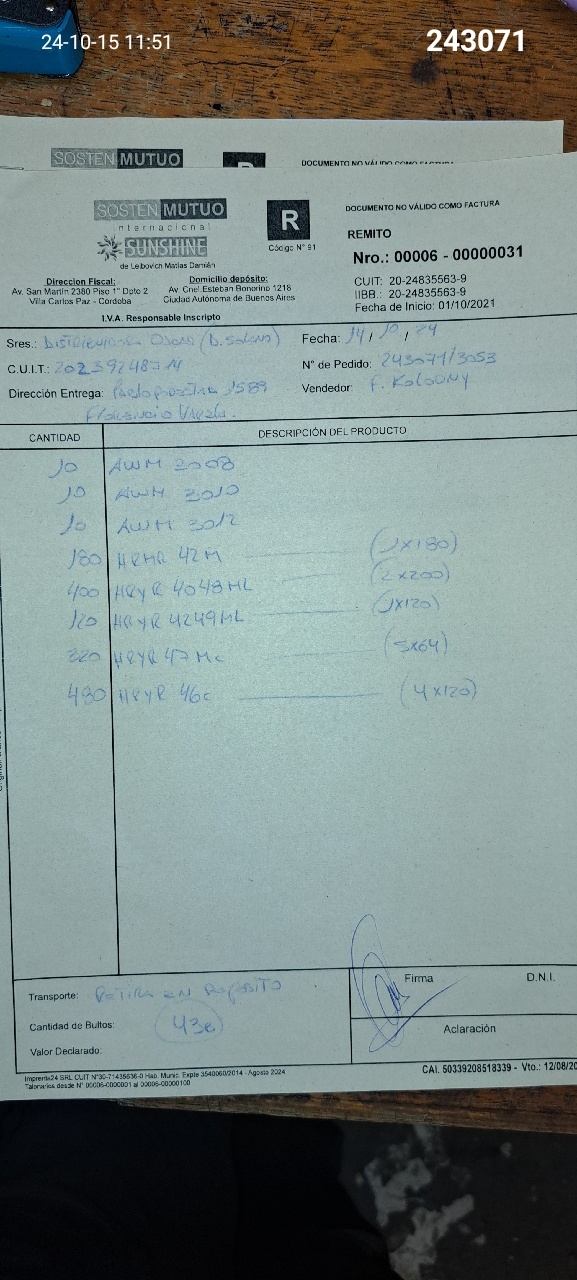 24-10-15 11:51
243071
SOSTEN MUTUO
R
DOCUMENTO NO VÁLIDO COMO FACTURA
SOSTEN MUTUO
internacional
SUNSHINE
de Leibovich Matias Damián
R
Código N° 91
DOCUMENTO NO VÁLIDO COMO FACTURA
REMITO
Nro.: 00006 - 00000031
CUIT: 20-24835563-9
IIBB.: 20-24835563-9
Fecha de Inicio: 01/10/2021
Direccion Fiscal:
Av. San Martín 2380 Piso 1° Dpto 2
Villa Carlos Paz - Cordoba
Domicilio depósito:
Av. Cnel Esteban Bonorino 1218
Ciudad Autónoma de Buenos Aires
I.V.A. Responsable Inscripto
Sres.: Distribuidora (D. Solano)
Fecha: 14 / 10 / 24
C.U.I.T.: 20239248714
N° de Pedido: 243071/3053
Dirección Entrega: 1589
Vendedor: F. Kolodny
Florencio Varela.
CANTIDAD DESCRIPCIÓN DEL PRODUCTO
10 AWM 3008
10 AWM 3010
10 AWM 3012
180 HRMR 42M (1x180)
400 HRYR 4048ML (2x200)
120 HRYR 4249ML (1x120)
320 HRYR 47Mc (5x64)
480 HRYR 46c (4x120)
Transporte: Retira en Deposito
Cantidad de Bultos:
Valor Declarado:
Firma
D.N.I.
Aclaración
Imprenta24 SRL CUIT N°30-71435636-0 Hab. Munic. Expte 3540060/2014 - Agosto 2024
Talonarios desde N° 00006-0000001 al 00006-00000100
CAI. 50339208518339 - Vto.: 12/08/20